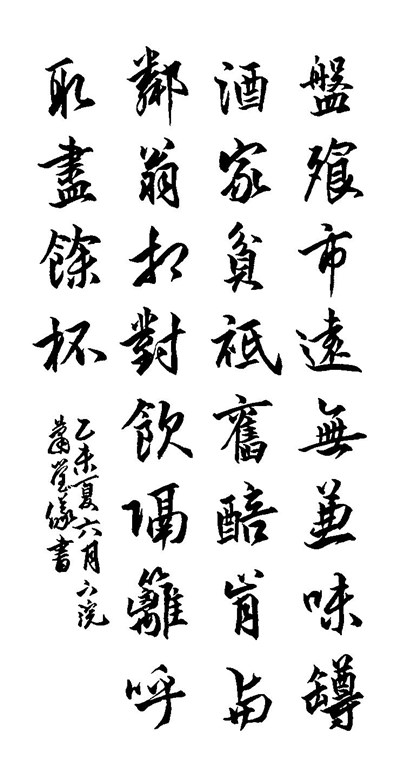 盤飧市遠無兼味罇
酒家貧祗舊醅肯與
鄰翁相對飲隔籬呼
取盡餘杯
乙未夏六月下浣
蕭書